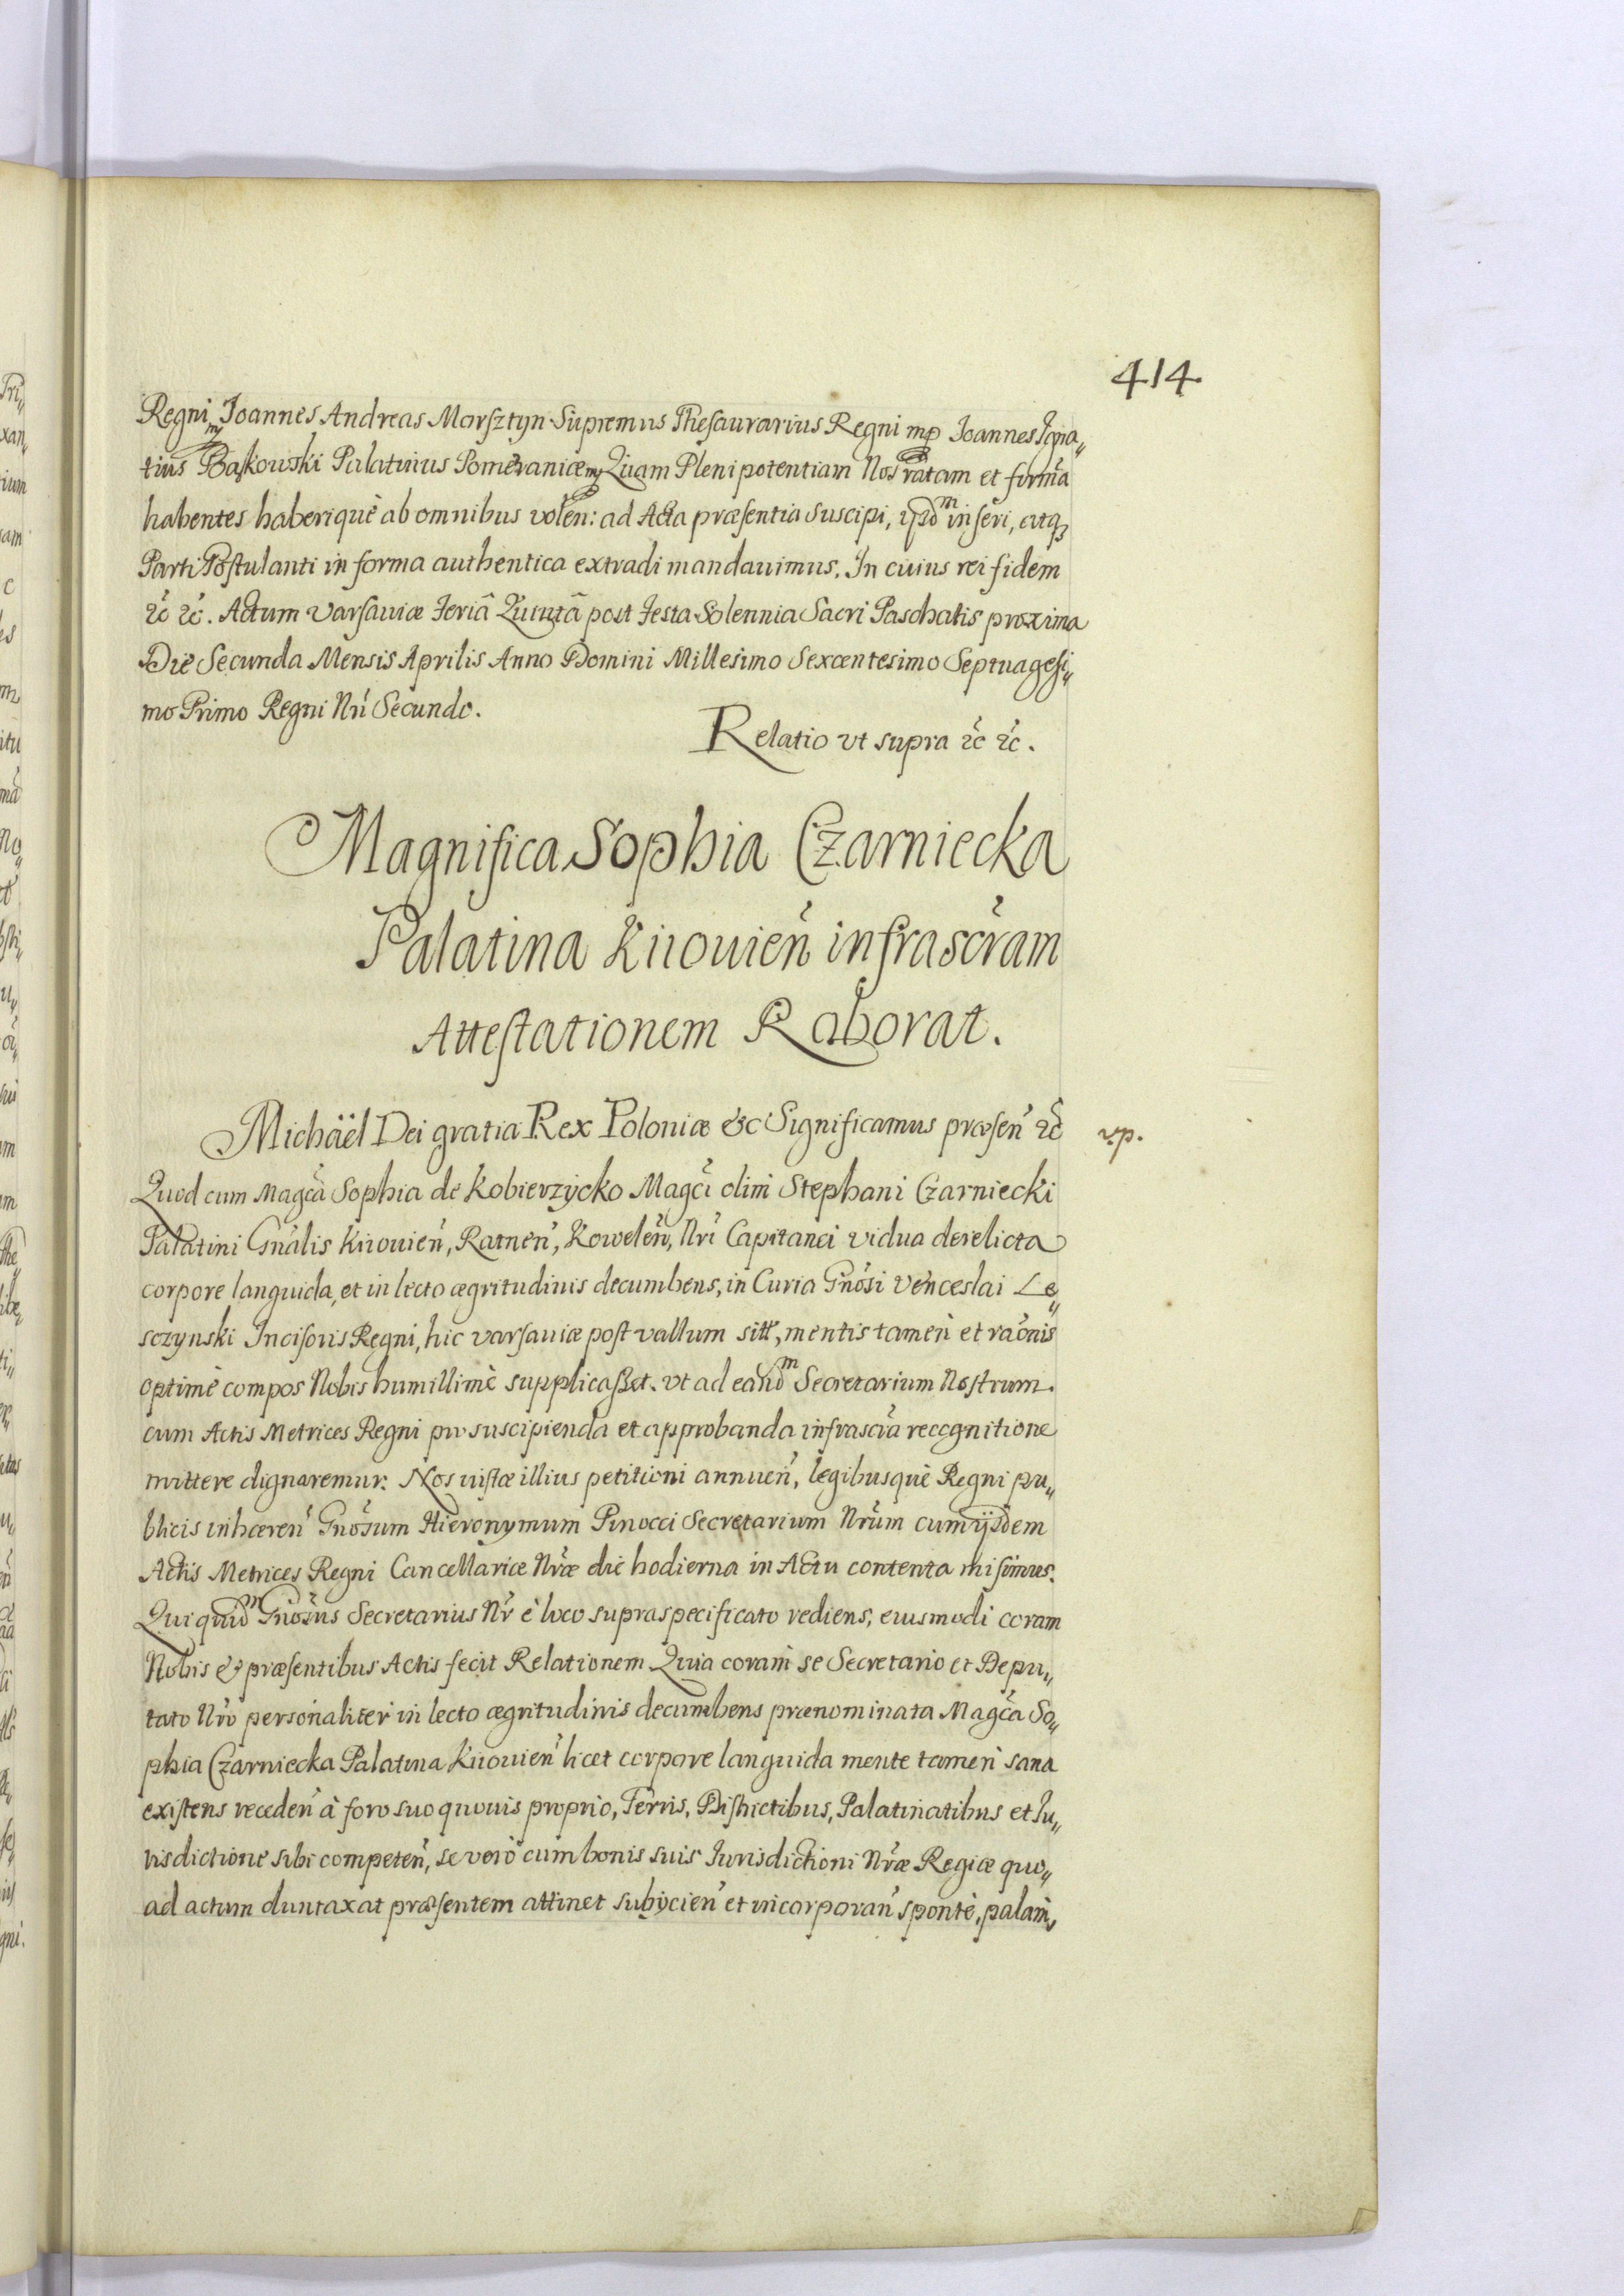 414.
Regni mp Joannes Andreas Morsztyn Supremus Thesaurarius Regni mp Joannes Igna„
tius Bąkowski Palatinus Pomeraniæ mp Quam Plenipotentiam Nos ratam et firmã
habentes haberique ab omnibus volen̄: ad Acta præsentia suscipi, ijsdm̃ inseri, atq₃
Parti Postulanti in forma authentica extradi mandauimus. In cuius rei fidem
&c̃ &c̃. Actum Varsauiæ Feriâ Quintâ post Festa Solennia Sacri Paschatis proxima
Die Secunda Mensis Aprilis Anno Domini Millesimo Sexcentesimo Septuagesi„
mo Primo Regni Nr̃i Secundo.
Relatio vt supra &c̃ &c̃.
Magnifica Sophia Czarniecka
Palatina Kiiouien̄ infrascr̃am
Attestationem Roborat.
Michäel Dei gratia Rex Poloniæ &c Significamus præsen̄ &c̃
v.p.
Quod cum Magcã Sophia de Kobierzycko Magc̃i olim Stephani Czarniecki
Palatini Gnãlis Kiiouien̄, Ratnen̄, Kowelen̄, Nr̃i Capitanei vidua derelicta
corpore languida, et in lecto ægritudinis decumbens, in Curia Gnõsi Venceslai Le„
sczynski Incisoris Regni, hic Varsauiæ post vallum sitt̃, mentis tamen et raõnis
optimè compos Nobis humillimè supplicasset. vt ad eand̃m Secretarium Nostrum
cum Actis Metrices Regni pro suscipienda et approbanda infrascr̃a recognitione
mittere dignaremur. Nos iustæ illius petitioni annuen̄, legibusquè Regni pu„
blicis inhæren̄ Gnõsum Hieronymum Pinocci Secretarium Nr̃um cum ijsdem
Actis Metrices Regni Cancellariæ Nr̃æ die hodierna in Actu contenta misimus.
Qui quid̃m Gnõsus Secretarius Nr̃ è loco supraspecificato rediens, eiusmodi coram
Nobis & præsentibus Actis fecit Relationem Quia coram se Secretario et Depu„
tato Nr̃o personaliter in lecto ægritudinis decumbens prænominata Magcã So„
phia Czarniecka Palatina Kiiouien̄ licet corpore languida mente tamen sana
existens receden̄ à foro suo quouis proprio, Terris, Districtibus, Palatinatibus et Iu„
risdictione sibi competen̄, se verò cum bonis suis Jurisdictioni Nr̃æ Regiæ quo„
ad actum duntaxat præsentem attinet subijcien̄ et incorporan̄ spontè, palam,